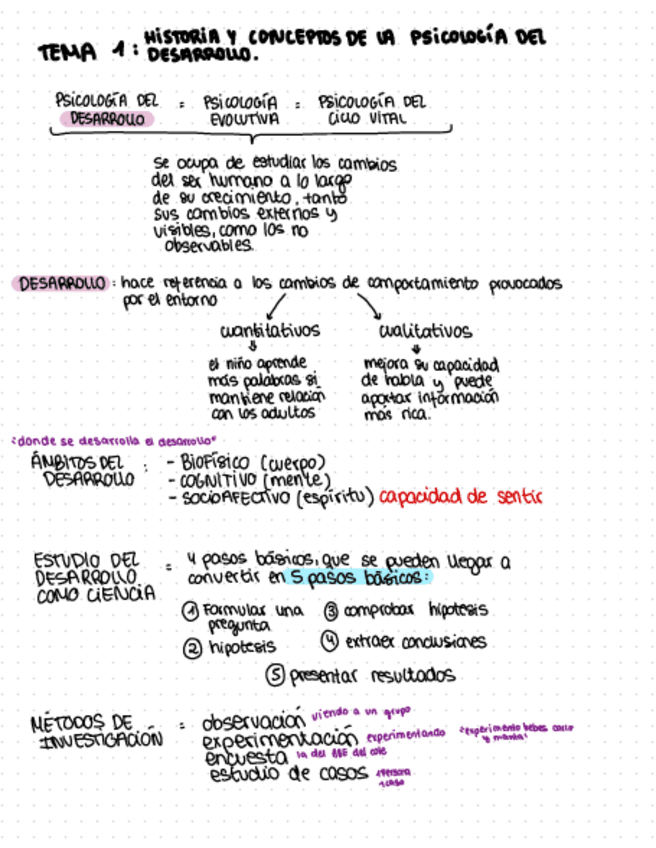 TEMA 1: HISTORIA Y CONCEPTOS DE LA PSICOLOGÍA DEL
DESARROLLO.
PSICOLOGÍA DEL = PSICOLOGÍA = PSICOLOGÍA DEL
DESARROLLO EVOLUTIVA CICLO VITAL
se ocupa de estudiar los cambios
del ser humano a lo largo
de su crecimiento, tanto
sus cambios externos y
visibles, como los no
observables.
DESARROLLO: hace referencia a los cambios de comportamiento provocados
por el entorno
cuantitativos cualitativos
el niño aprende
más palabras si
mantiene relación
con los adultos
mejora su capacidad
de habla y puede
aportar información
más rica.
"donde se desarrolla el desarrollo"
ÁMBITOS DEL : - BIOFÍSICO (cuerpo)
DESARROLLO - COGNITIVO (mente)
- SOCIOAFECTIVO (espíritu) capacidad de sentir
ESTUDIO DEL = 4 pasos básicos, que se pueden llegar a
DESARROLLO convertir en 5 pasos básicos:
COMO CIENCIA
① Formular una ③ comprobar hipotesis
pregunta
② hipotesis ④ extraer conclusiones
⑤ presentar resultados
MÉTODOS DE = observación viendo a un grupo
INVESTIGACIÓN experimentación experimentando "experimento bebes
y mamá"
encuesta la del del cole
estudio de casos 1 persona
1 caso